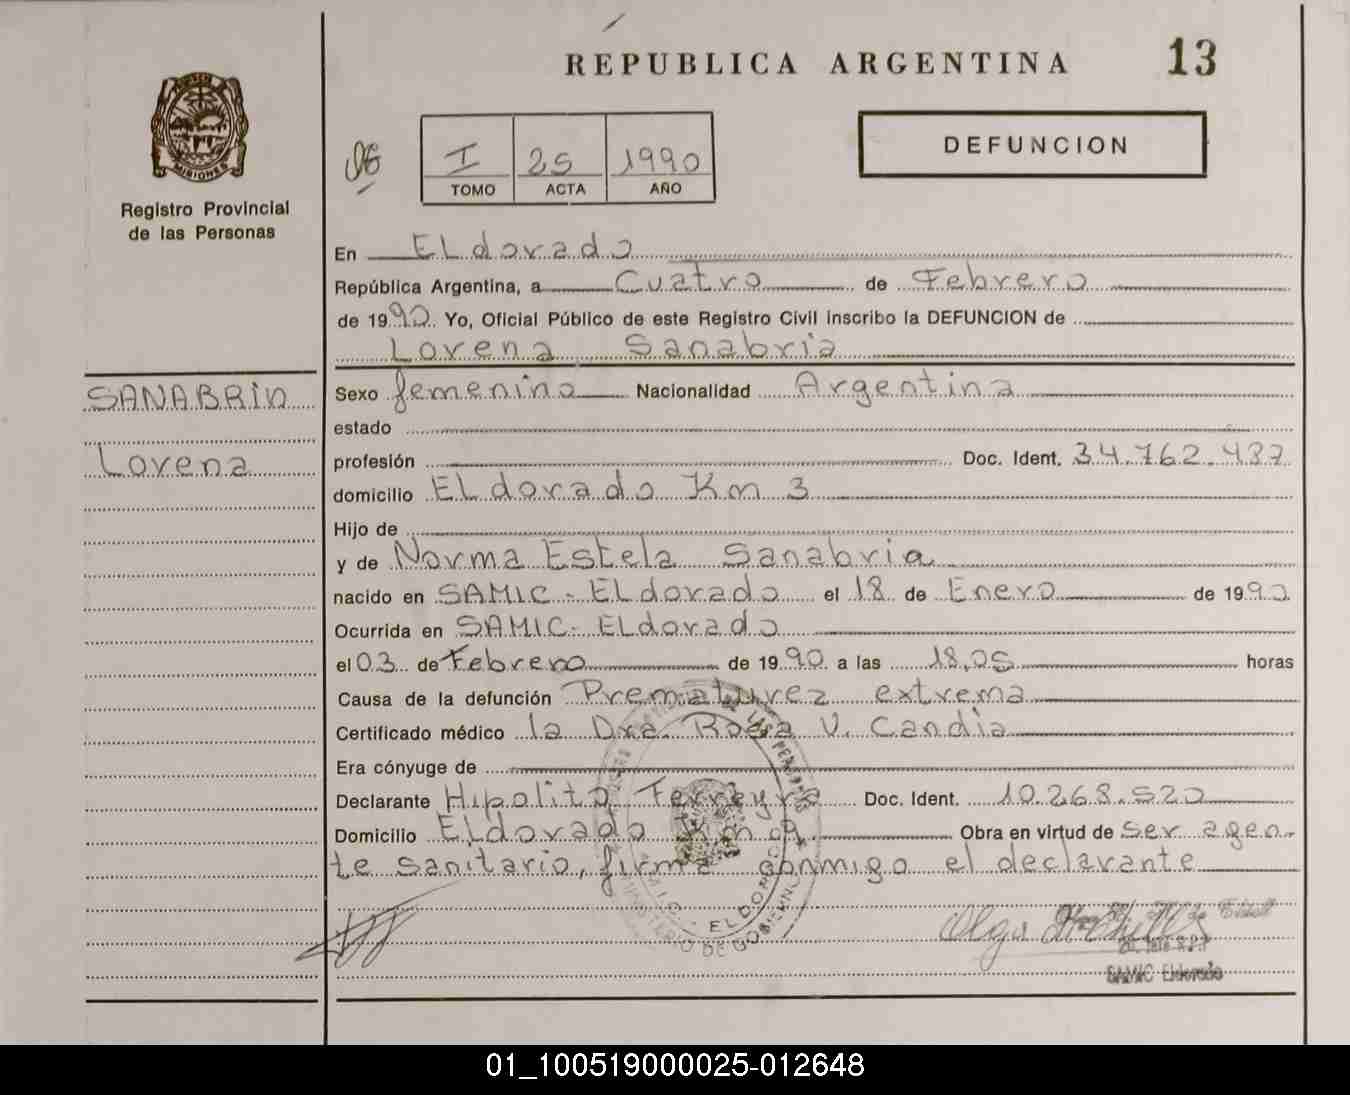 REPUBLICA ARGENTINA 13
MISIONES
Registro Provincial
de las Personas
I 25 1990
TOMO ACTA AÑO
DEFUNCION
En ELdorado
República Argentina, a Cuatro de Febrero
de 1990 Yo, Oficial Público de este Registro Civil inscribo la DEFUNCION de
Lorena Sanabria
SANABRIA
Lorena
Sexo femenino Nacionalidad Argentina
estado
profesión Doc. Ident. 34.762.437
domicilio ELdorado Km 3
Hijo de
y de Norma Estela Sanabria
nacido en SAMIC - ELdorado el 18 de Enero de 1990
Ocurrida en SAMIC - ELdorado
el 03 de Febrero de 1990 a las 18,05 horas
Causa de la defunción Prematurez extrema
Certificado médico la Dra. Rosa V. Candia
Era cónyuge de
Declarante Hipolito Ferreyra Doc. Ident. 10.268.520
Domicilio ELdorado Km 9 Obra en virtud de ser agen-
te sanitario, firma conmigo el declarante
MINISTERIO DE GOBIERNO
ELDORADO
SAMIC Eldorado
01_100519000025-012648